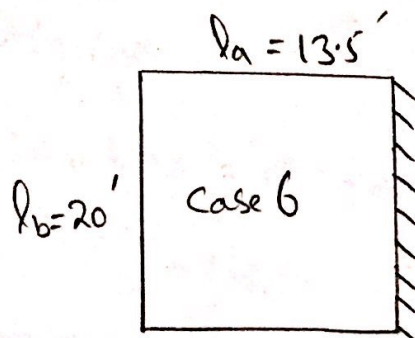 la = 13.5'
lb=20'
case 6